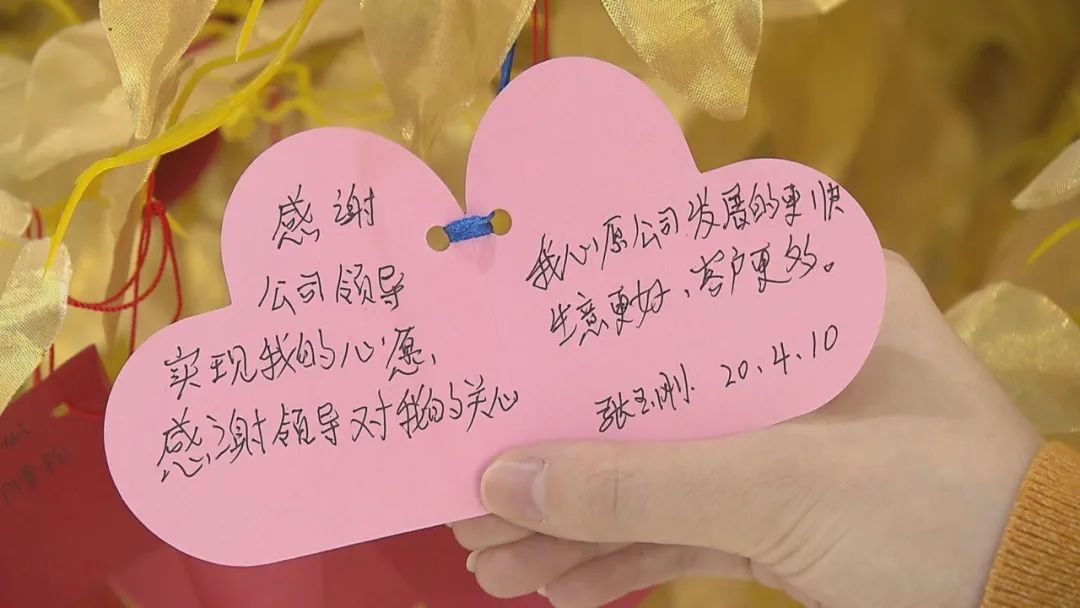 感谢
公司领导
实现我的心愿，
感谢领导对我的关心
我心愿公司发展的更快
生意更好，客户更多。
张玉刚 20.4.10